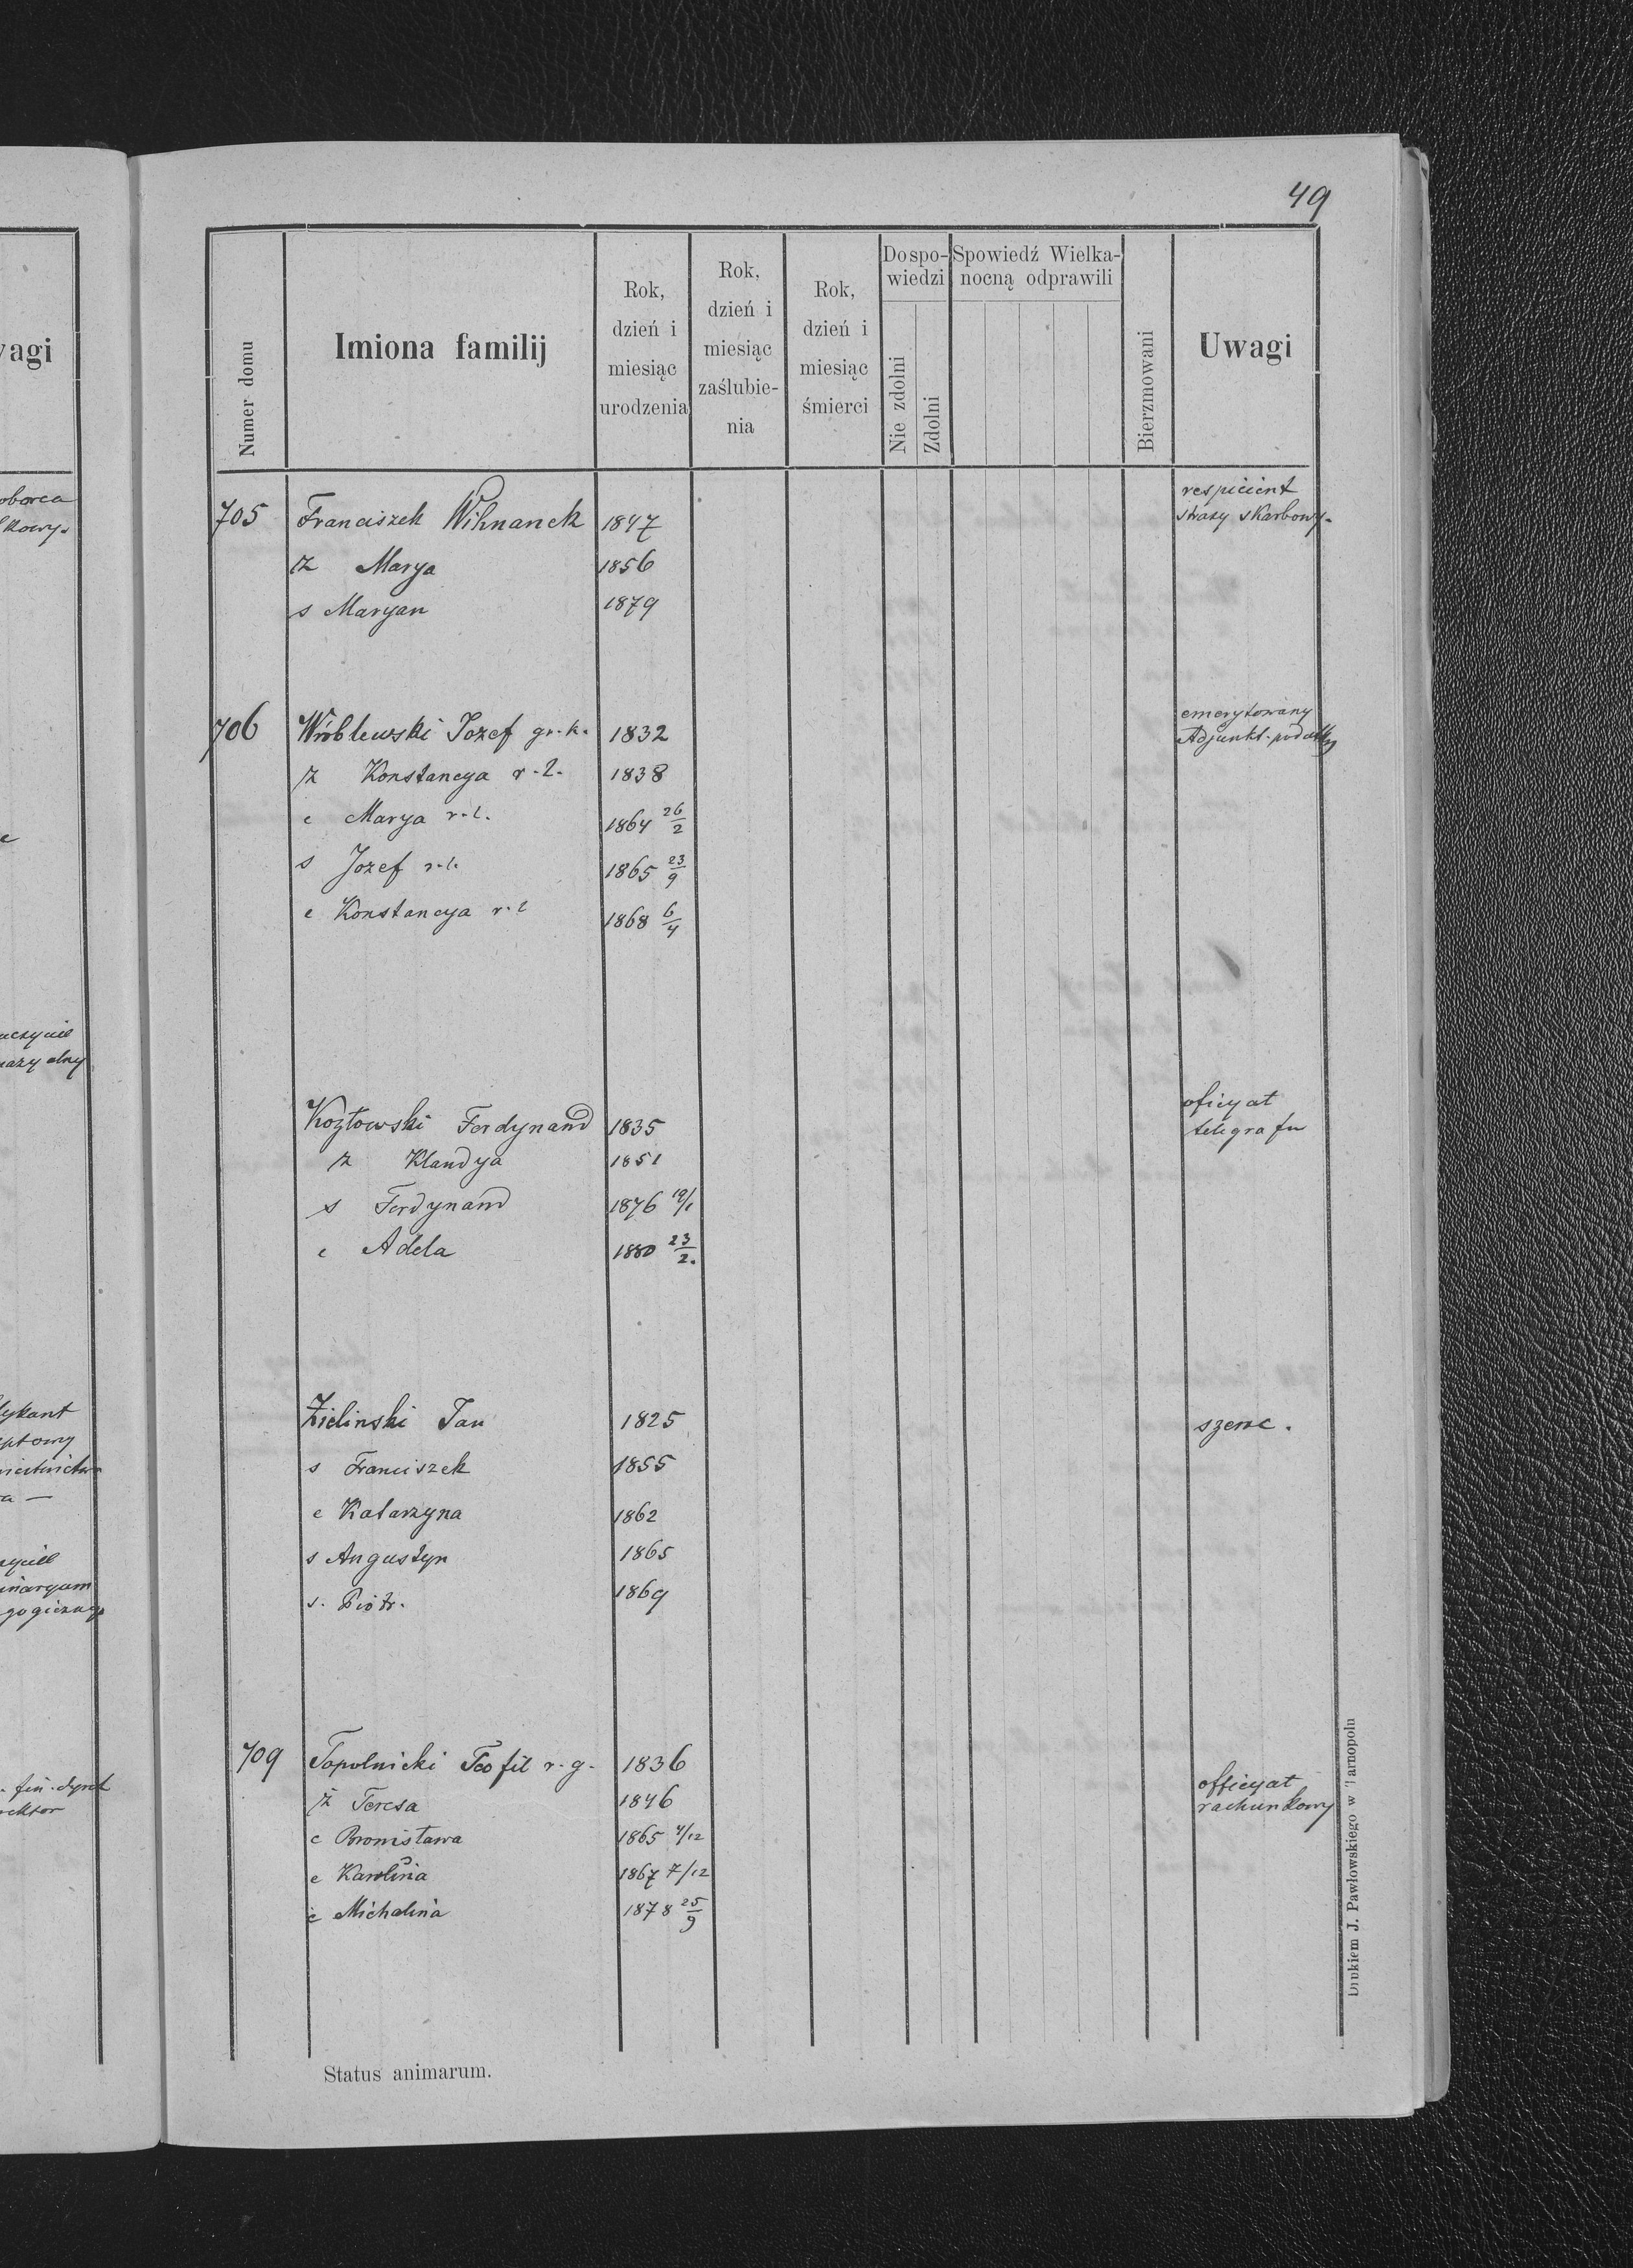 49
Numer domu
Imiona familij
Rok,
dzień i
miesiąc
urodzenia
Rok,
dzień i
miesiąc
zaślubie-
nia
Rok,
dzień i
miesiąc
śmierci
Do spo-
wiedzi
Nie zdolni
Zdolni
Spowiedź Wielka-
nocną odprawili
Bierzmowani
Uwagi
705 Franciszek 1847 respicient
straży skarbowy.
ż Marya 1856
s Maryan 1879
706 Wróblewski Jozef gr. k. 1832 emerytowany
Adjunkt podatky
ż Konstancya r. l. 1838
c Marya r. l. 1864 26/2
s Jozef r. l. 1865 23/9
c Konstancya r. l 1868 6/4
Kozłowski Ferdynand 1835 oficyał
telegrafu
ż Klaudya 1851
s Ferdynand 1876
c Adela 1880 23/2.
Zielinski Jan 1825 szewc.
s Franciszek 1855
c Katarzyna 1862
s Augustyn 1865
s. Piotr. 1869
709 Topolnicki Teofil r. g. 1836 officyał
rachunkowy
ż Teresa 1846
c Bronisława 1865 4/12
c Karolina 1867 7/12
c Michalina 1878 25/9
Status animarum.
Drukiem J. Pawłowskiego w Tarnopolu
wagi